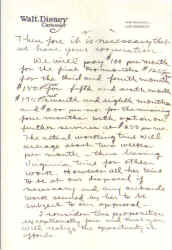 Walt Disney
Cartoonist
Therefore it is necessary that
we have your cooperation.
We will pay 100 per month
for the first two months 125 00
for the third and fourth month
150 00 for fifth and sixth month
175 seventh and eighth months
and 200 per mo for the last
four months with option on
further services at 250 per mo.
The actual working time will
average about two weeks
per month - thus leaving
Virginia time for other
work. However all her time
to be at our disposal if
necessary and any outside
work would by her to be
subject to our approval.
I consider this proposition
exceptionally fair and hope you
will realize the opportunity it
affords.